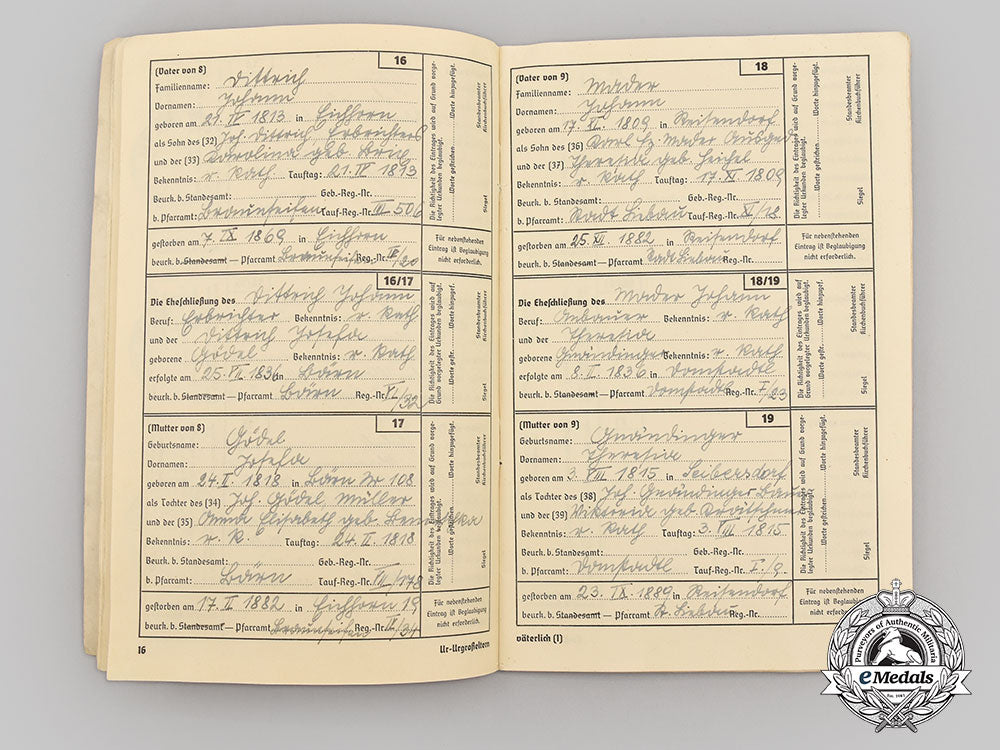 16
(Vater von 8)
Familienname: Dittrich
Vornamen: Johann
geboren am 21. IV 1813 in Eichhorn
als Sohn des (32) Joh. Dittrich Erbrichters
und der (33) Karolina geb.
Bekenntnis: r. Kath. Tauftag: 21. IV 1813
Beurk. b. Standesamt: Geb.-Reg.-Nr.
b. Pfarramt: Braunseifen Tauf-Reg.-Nr. III 506
gestorben am 7. IX 1869 in Eichhorn
beurk. b. Standesamt — Pfarramt Braunseifen Reg.-Nr. IV/20
Die Richtigkeit des Eintrages wird auf Grund vorge-
legter Urkunden beglaubigt.
Worte gestrichen. Worte hinzugefügt.
Siegel
Standesbeamter
Kirchenbuchführer
Für nebenstehenden
Eintrag ist Beglaubigung
nicht erforderlich.
16/17
Die Eheschließung des Dittrich Johann
Beruf: Erbrichter Bekenntnis: r. Kath
und der Dittrich Josefa
geborene Gödel Bekenntnis: r. Kath
erfolgte am 25. VII. 1836 in Bärn
beurk. b. Standesamt — Pfarramt Bärn Reg.-Nr. VI/32
Die Richtigkeit des Eintrages wird auf
Grund vorgelegter Urkunden beglaubigt.
Worte gestr. Worte hinzugef.
Siegel
Standesbeamter
Kirchenbuchführer
17
(Mutter von 8)
Geburtsname: Gödel
Vornamen: Josefa
geboren am 24. II. 1818 in Bärn Nr 108
als Tochter des (34) Joh. Gödel Müller
und der (35) Anna Elisabeth geb.
Bekenntnis: r. K. Tauftag: 24. II. 1818
Beurk. b. Standesamt: Geb.-Reg.-Nr.
b. Pfarramt: Bärn Tauf-Reg.-Nr. VII/178
gestorben am 17. II 1882 in Eichhorn 19
beurk. b. Standesamt — Pfarramt Braunseifen Reg.-Nr. IV/34
Die Richtigkeit des Eintrages wird auf Grund vorge-
legter Urkunden beglaubigt.
Worte gestrichen. Worte hinzugefügt.
Siegel
Standesbeamter
Kirchenbuchführer
Für nebenstehenden
Eintrag ist Beglaubigung
nicht erforderlich.
16
Ur-Urgroßeltern
18
(Vater von 9)
Familienname: Mader
Vornamen: Johann
geboren am 17. XI. 1809 in Reisendorf
als Sohn des (36) Karl Fz Mader Ausged
und der (37) Theresia geb.
Bekenntnis: r. Kath Tauftag: 17. XI 1809
Beurk. b. Standesamt: Geb.-Reg.-Nr.
b. Pfarramt: Stadt Liebau Tauf-Reg.-Nr. XI/18
gestorben am 25. XII. 1882 in Reisendorf
beurk. b. Standesamt — Pfarramt Stadt Liebau Reg.-Nr.
Die Richtigkeit des Eintrages wird auf Grund vorge-
legter Urkunden beglaubigt.
Worte gestrichen. Worte hinzugefügt.
Siegel
Standesbeamter
Kirchenbuchführer
Für nebenstehenden
Eintrag ist Beglaubigung
nicht erforderlich.
18/19
Die Eheschließung des Mader Johann
Beruf: Anbauer Bekenntnis: r. Kath
und der Theresia
geborene Gnändinger Bekenntnis: r. Kath
erfolgte am 8. II. 1836 in Domstadtl
beurk. b. Standesamt — Pfarramt Domstadtl Reg.-Nr. I/23
Die Richtigkeit des Eintrages wird auf
Grund vorgelegter Urkunden beglaubigt.
Worte gestr. Worte hinzugef.
Siegel
Standesbeamter
Kirchenbuchführer
19
(Mutter von 9)
Geburtsname: Gnändinger
Vornamen: Theresia
geboren am 3. VIII 1815 in Seibersdorf
als Tochter des (38) Joh. Gnändinger
und der (39) Viktoria geb.
Bekenntnis: r. Kath Tauftag: 3. VIII. 1815
Beurk. b. Standesamt: Geb.-Reg.-Nr.
b. Pfarramt: Domstadtl Tauf-Reg.-Nr. I./9.
gestorben am 23. IX 1889 in Reisendorf
beurk. b. Standesamt — Pfarramt St. Liebau Reg.-Nr.
Die Richtigkeit des Eintrages wird auf Grund vorge-
legter Urkunden beglaubigt.
Worte gestrichen. Worte hinzugefügt.
Siegel
Standesbeamter
Kirchenbuchführer
Für nebenstehenden
Eintrag ist Beglaubigung
nicht erforderlich.
väterlich (1)
Purveyors of Authentic Militaria
eMedals